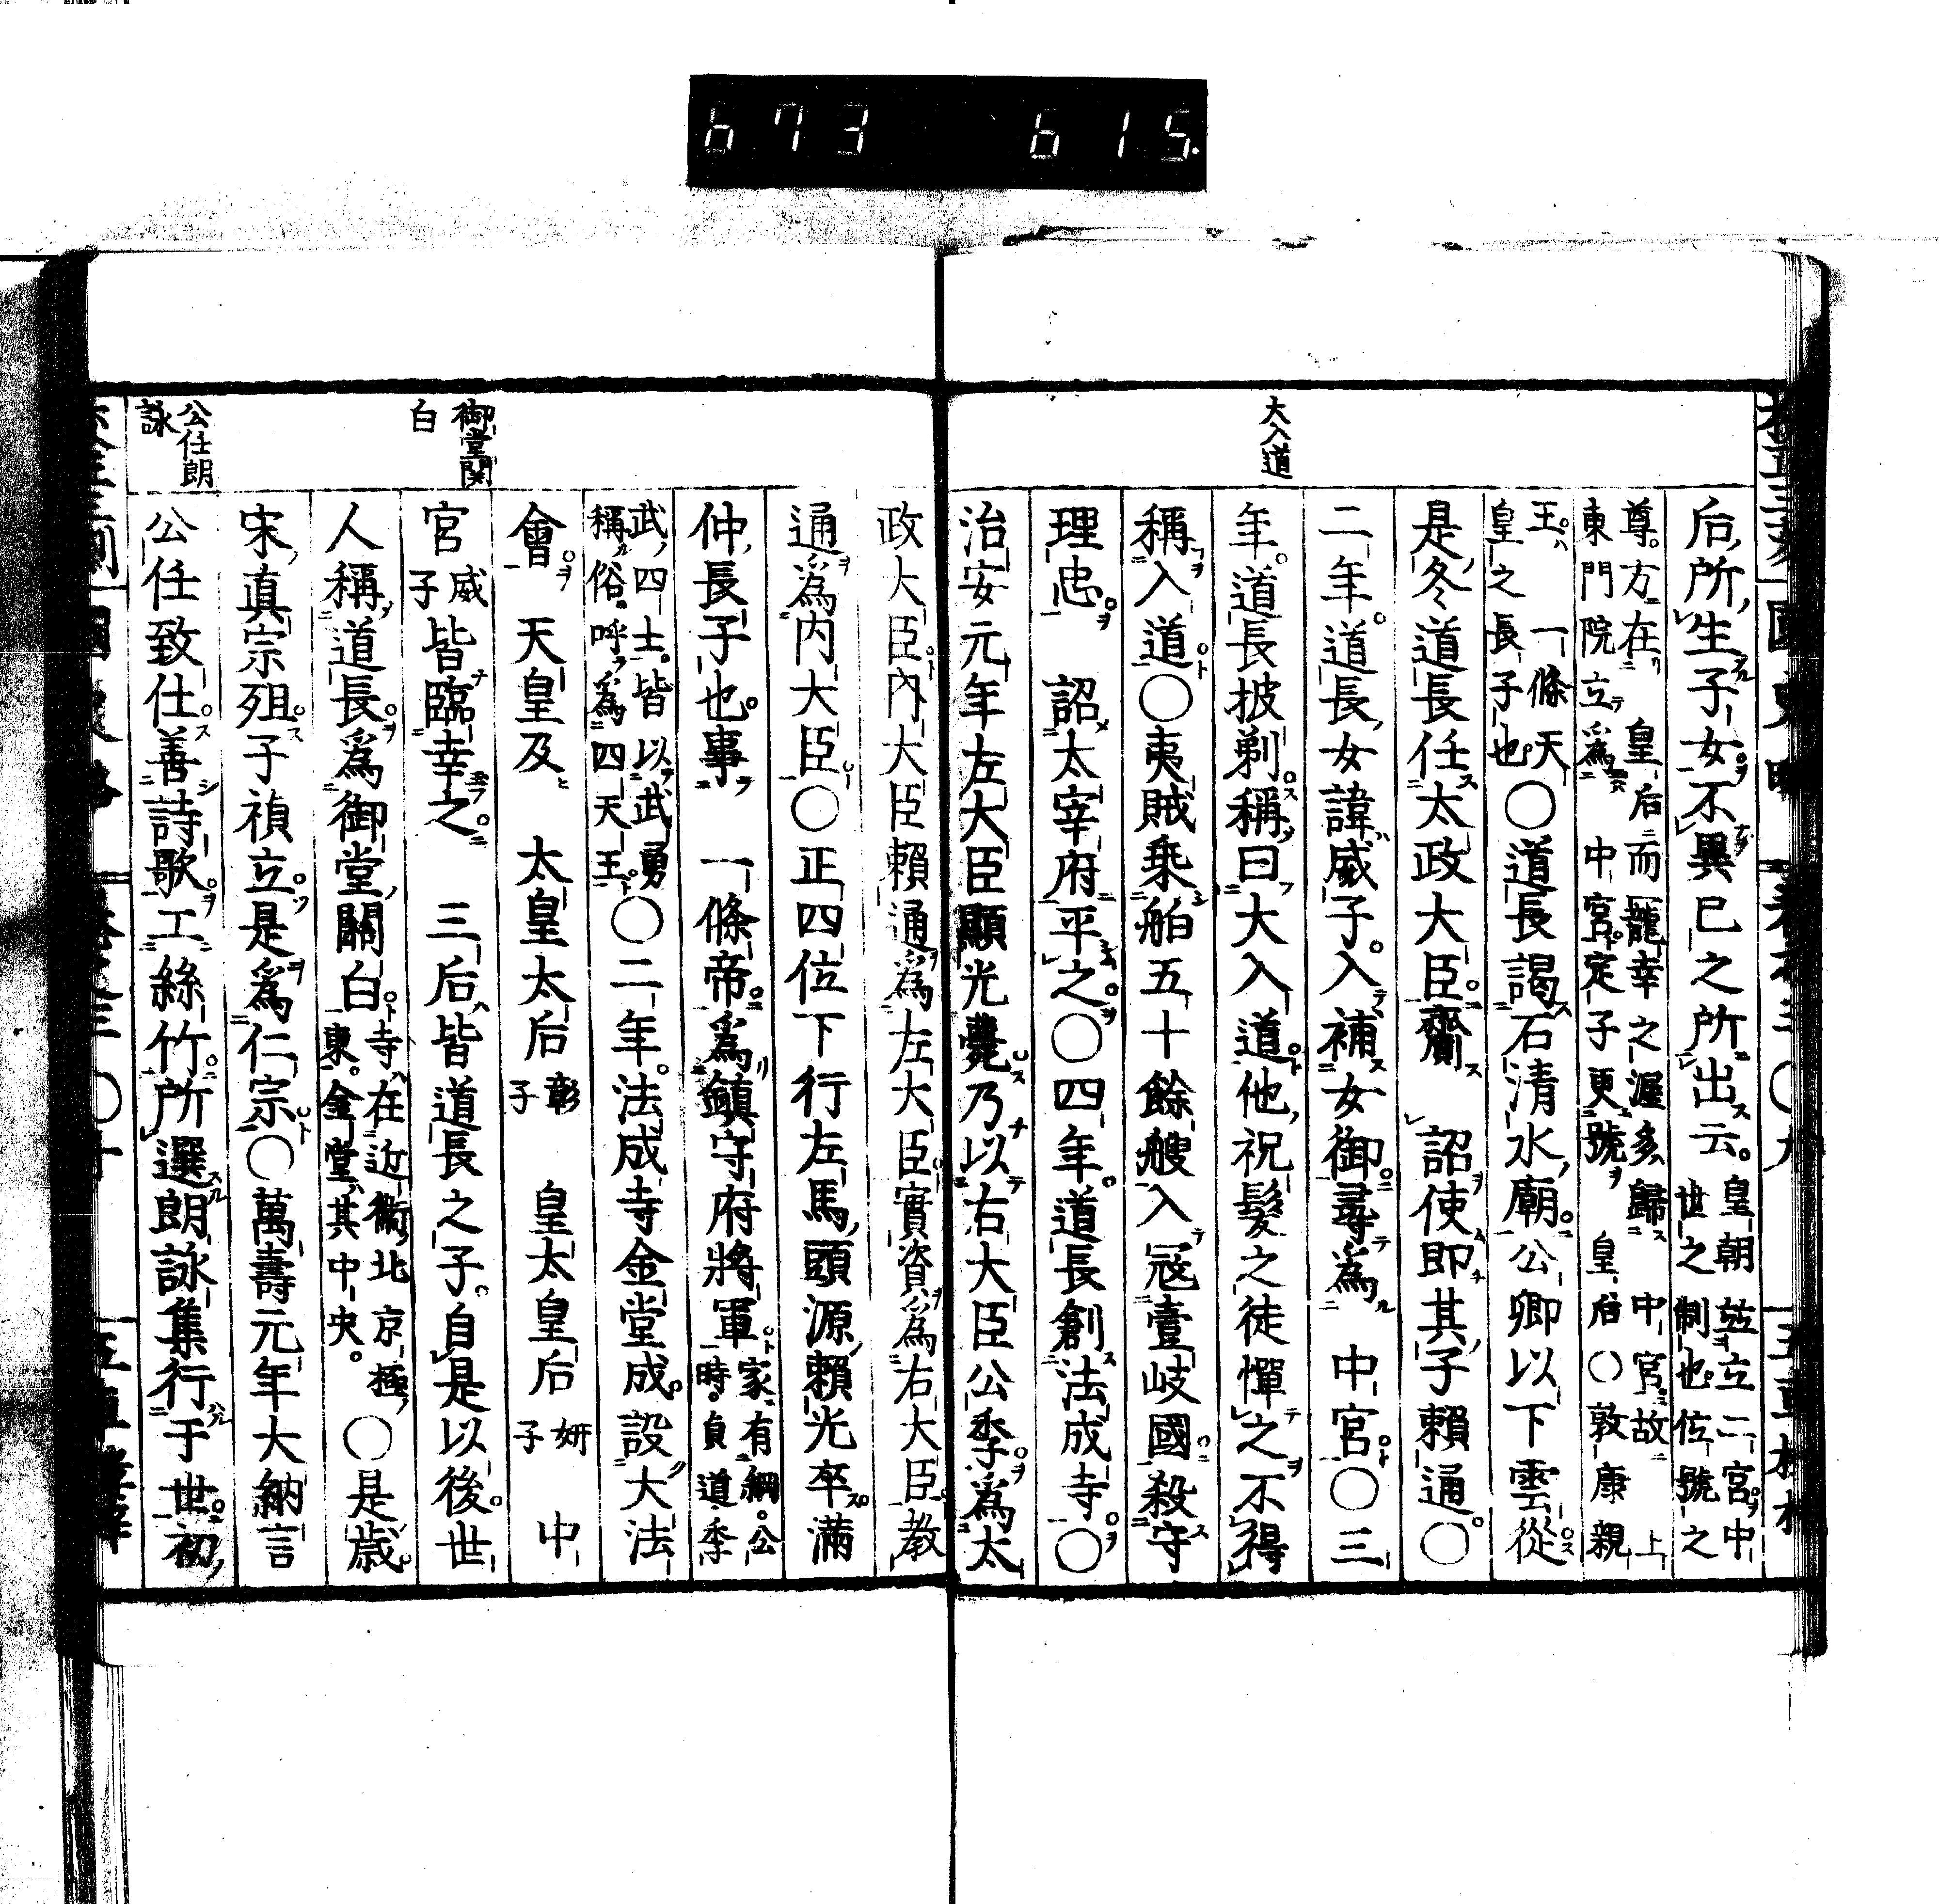 673 615.
大入道
后所生子女不異已之所出云。皇朝竝立二宮中
世之制也位號之
尊。方在 皇后而寵幸之渥多歸 中宮故 上
東門院立爲 中宮定子更號 皇后○敦康親
王。一條天
皇之長子也○道長謁石清水廟。公卿以下雲從
是冬道長任太政大臣。齎 詔使即其子賴通。○
二年。道長女諱威子。入補女御。尋爲 中宮○三
年。道長披剃。稱曰大入道。他祝髮之徒憚之不得
稱入道○夷賊乘舶五十餘艘入寇壹岐國。殺守
理忠。 詔太宰府平之。○四年。道長創法成寺。○
治安元年左大臣顯光薨。乃以右大臣公季。爲太
政大臣。內大臣賴通爲左大臣。實資爲右大臣。教
通爲內大臣○正四位下行左馬頭源賴光卒。滿
仲長子也。事 一條帝。爲鎮守府將軍家有綱。公
時。貞道季
武四士。皆以武勇
稱。俗呼爲四天王○二年。法成寺金堂成。設大法
會。 天皇及 太皇太后彰子 皇太皇后妍子 中
宮威子皆臨幸之。 三后皆道長之子。自是以後。世
人稱道長。爲御堂關白。寺在近衞北京極
東。金堂其中央。○是歲。
宋真宗殂。子禎立。是爲仁宗○萬壽元年大納言
公任致仕。善詩歌。工絲竹。所選朗詠集行于世。初
御堂関
白
公任朗
詠